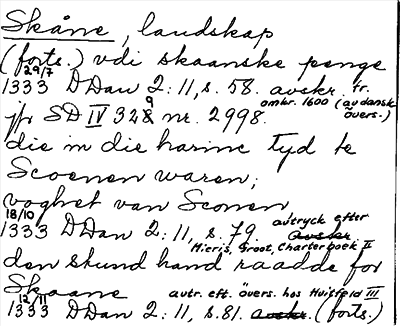 Skåne, landskap
(forts.) vdi skaanske penge
29/7
1333 DDan 2:11, s. 58. avskr. fr.
omkr. 1600 (av dansk övers.)
jfr SD IV 329 nr. 2998.
die in die harinc tyd te
Scoenen waren;
voghet van Sconen
18/10
1333 DDan 2:11, s. 79. avtryck efter
Mieris, Groot, Charterboek II
den stund hand raadde for
Skaane
12/11
autr. eft. övers. hos Huitfeld III
1333 DDan 2:11, s. 81. (forts.)